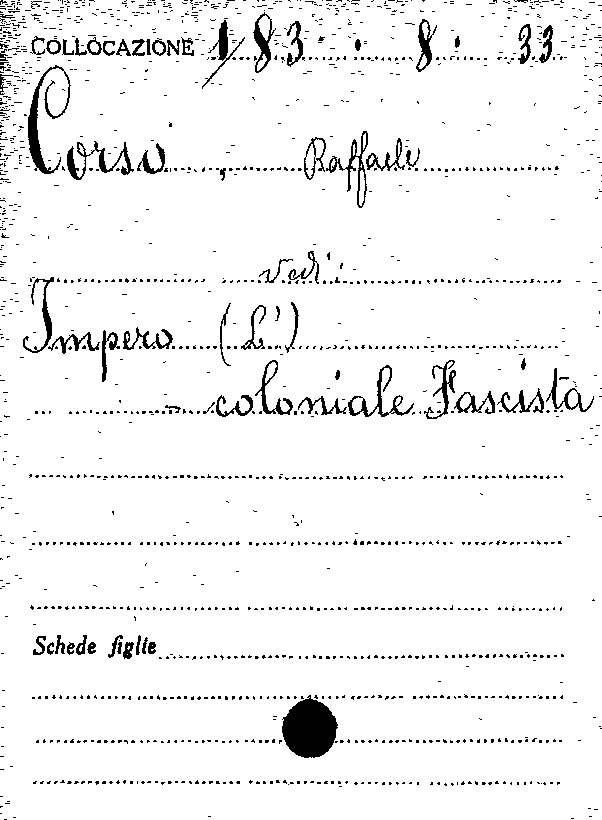 COLLOCAZIONE 183 · 8 · 33
Corso, Raffaele
vedi:
Impero (L')
- coloniale Fascista
Schede figlie